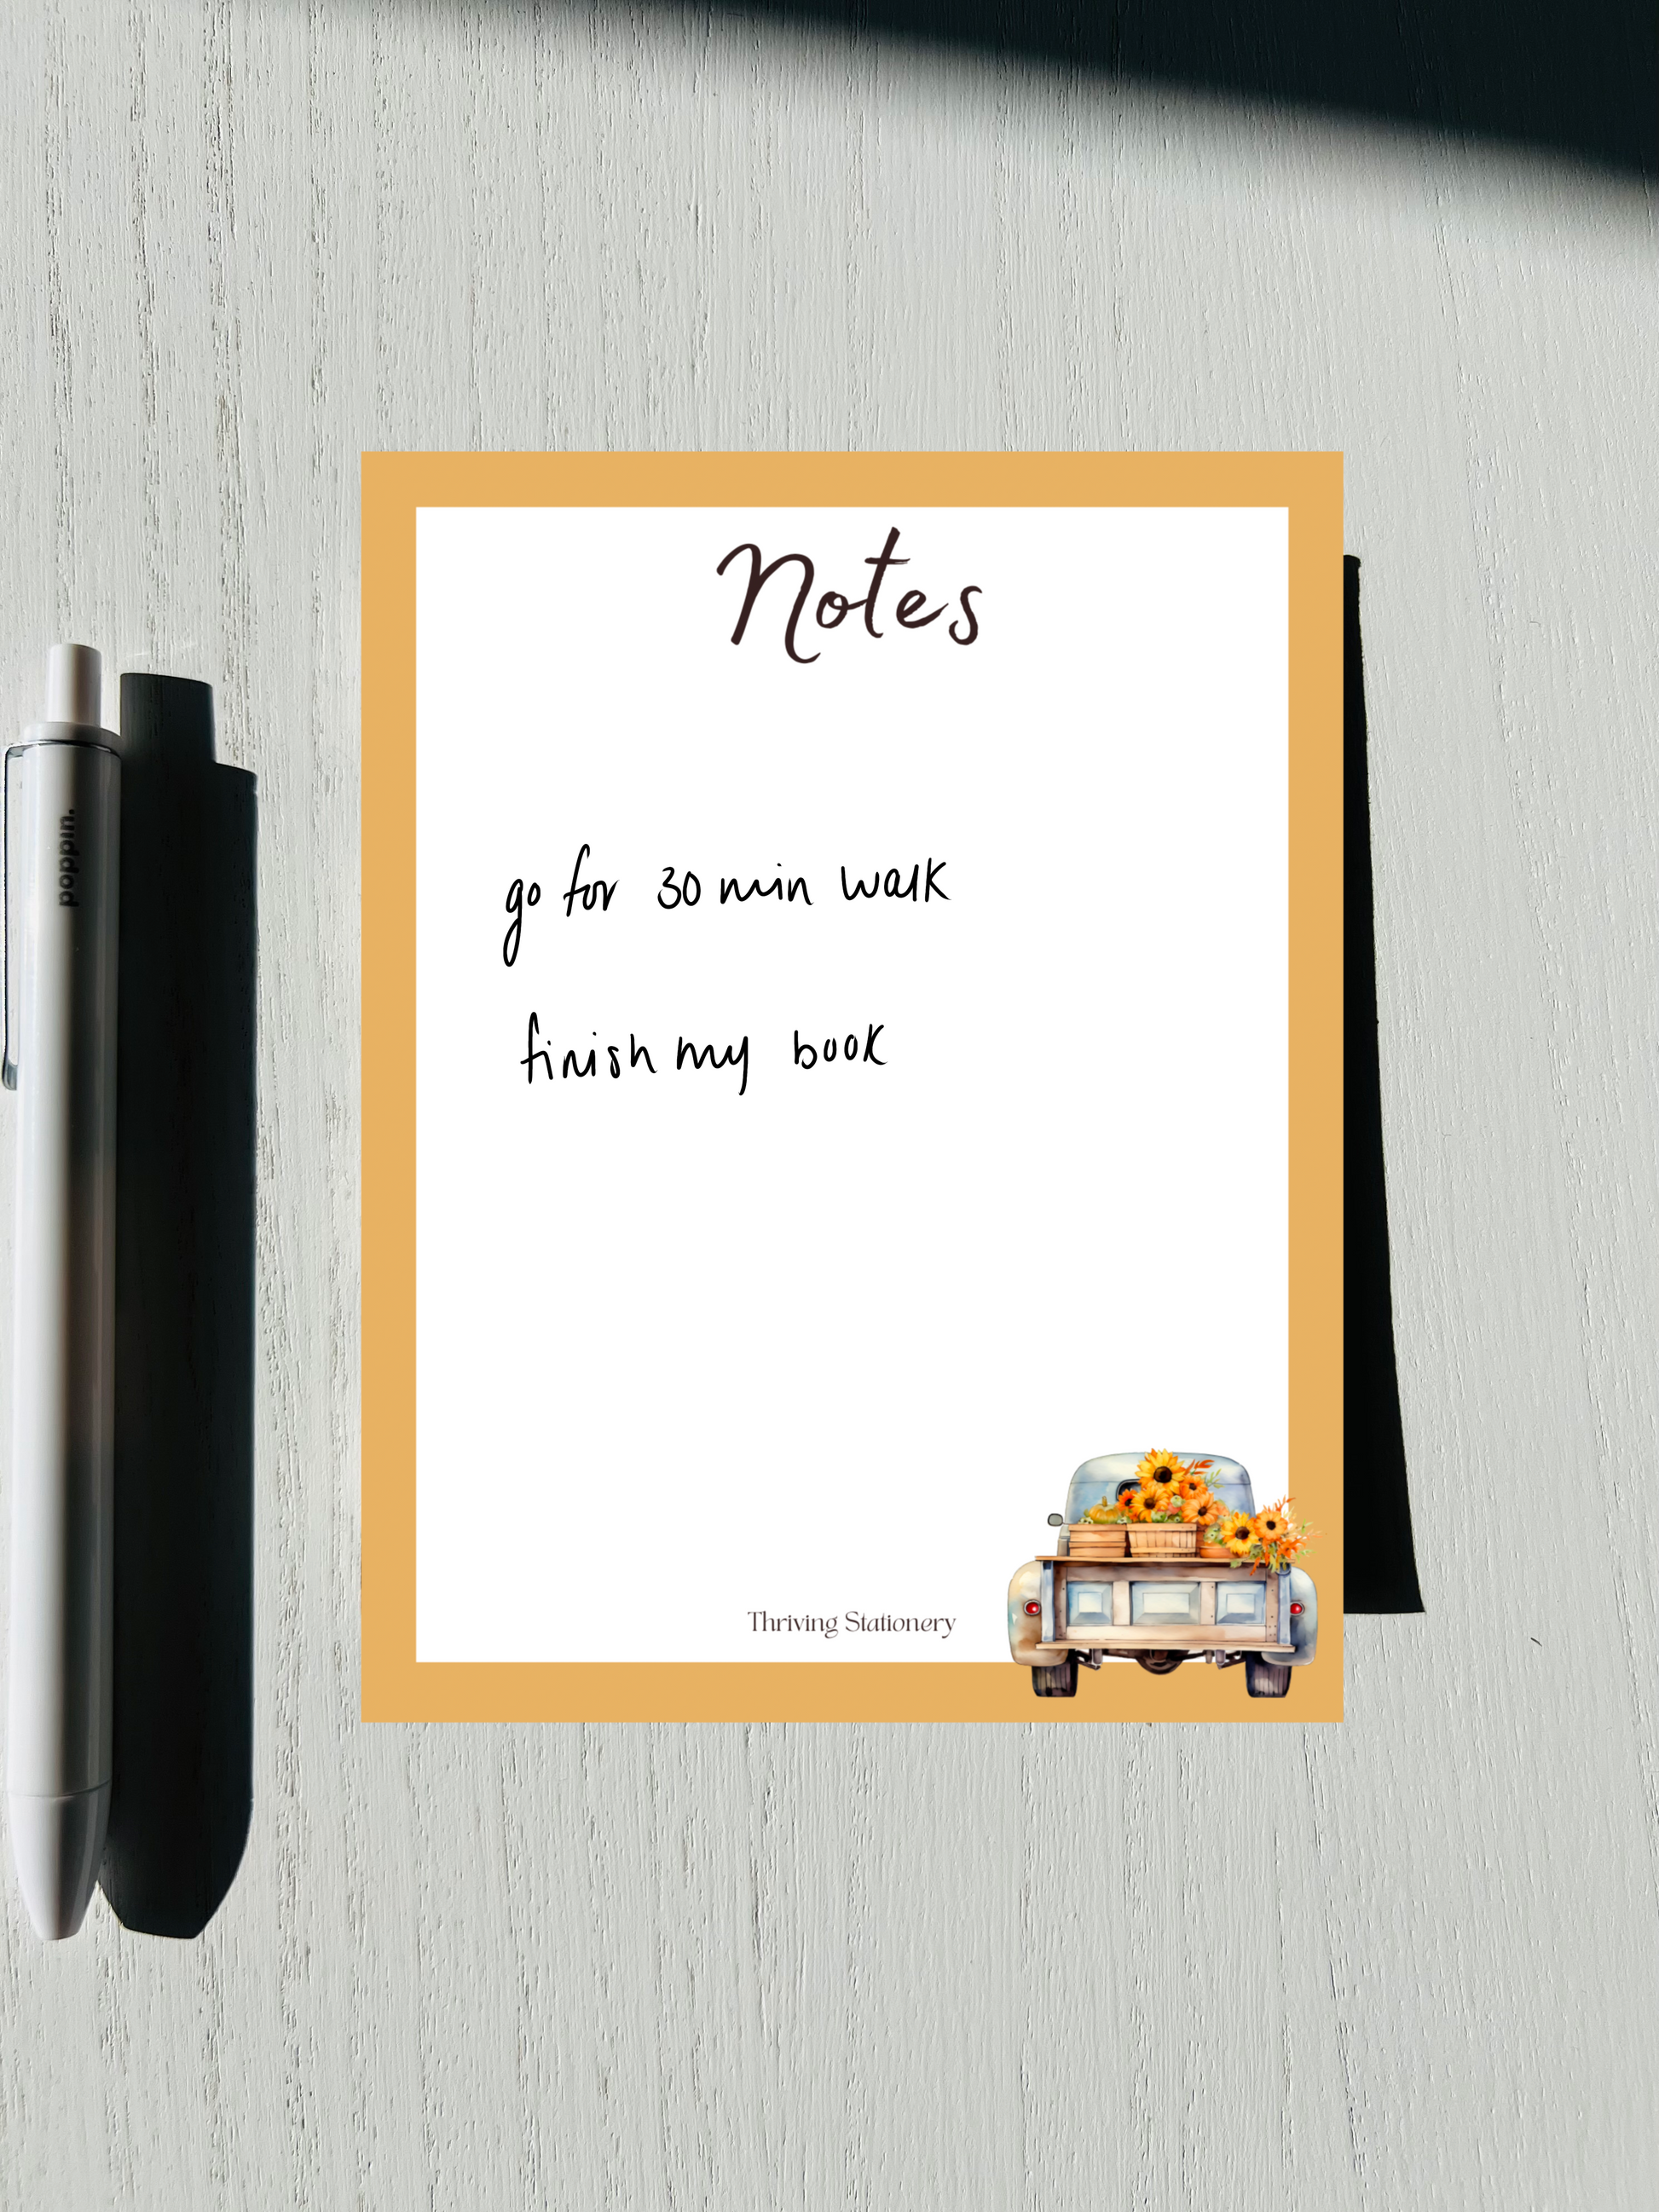 Notes
poppin.
go for 30 min walk
finish my book
Thriving Stationery